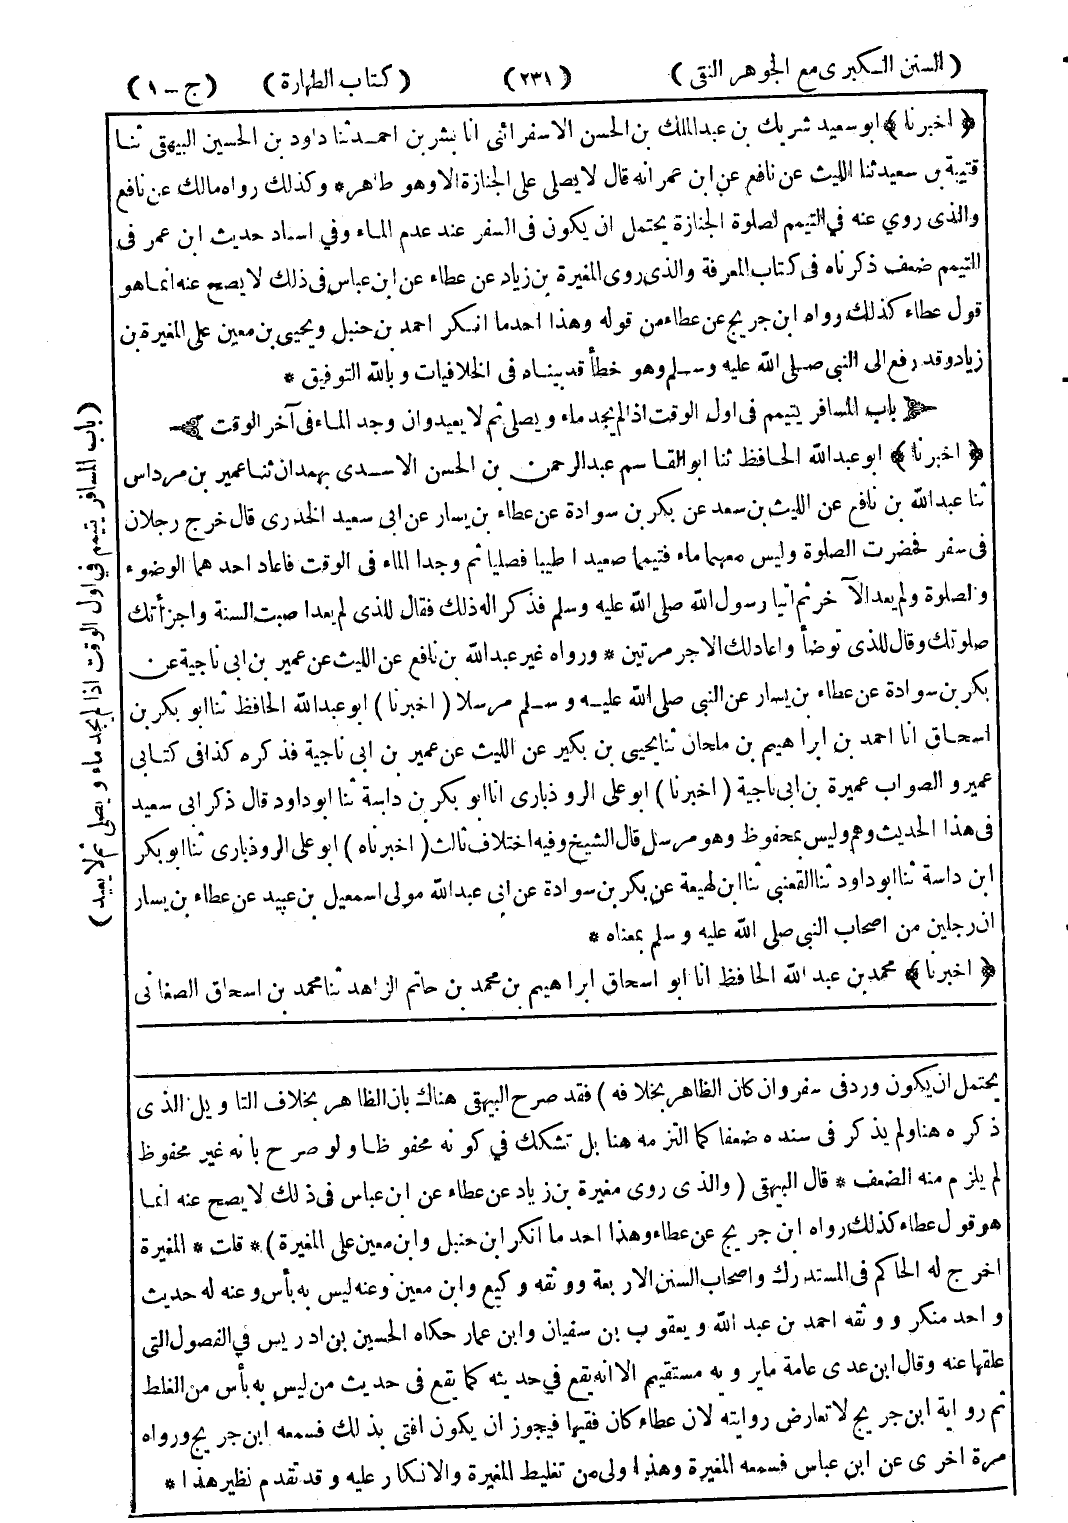 ( السنن الكبرى مع الجوهر النقى ) ( ٢٣١ ) ( كتاب الطهارة ) ( ج - ١ )
﴿ اخبرنا ﴾ ابو سعيد شريك بن عبد الملك بن الحسن الاسفرائنى انا بشر بن احمد ثنا داود بن الحسين البيهقى ثنا
قتيبة بن سعيد ثنا الليث عن نافع عن ابن عمر انه قال لا يصلى على الجنازة الا وهو طاهر * وكذلك رواه مالك عن نافع
والذى روي عنه في التيمم لصلوة الجنازة يحتمل ان يكون فى السفر عند عدم الماء وفي اسناد حديث ابن عمر فى
التيمم ضعف ذكرناه فى كتاب المعرفة والذى روى المغيرة بن زياد عن عطاء عن ابن عباس فى ذلك لا يصح عنه انما هو
قول عطاء كذلك رواه ابن جريج عن عطاء من قوله وهذا احد ما انكر احمد بن حنبل ويحيى بن معين على المغيرة بن
زياد وقد رفع الى النبى صلى الله عليه وسلم وهو خطأ قد بيناه فى الخلافيات وبالله التوفيق *
باب المسافر يتيمم فى اول الوقت اذا لم يجد ماء ويصلى ثم لا يعيد وان وجد الماء فى آخر الوقت
﴿ اخبرنا ﴾ ابو عبد الله الحافظ ثنا ابو القاسم عبد الرحمن بن الحسن الاسدى بهمدان ثنا عمير بن مرداس
ثنا عبد الله بن نافع عن الليث بن سعد عن بكر بن سوادة عن عطاء بن يسار عن ابى سعيد الخدرى قال خرج رجلان
فى سفر فحضرت الصلوة وليس معهما ماء فتيمما صعيدا طيبا فصليا ثم وجدا الماء فى الوقت فاعاد احدهما الوضوء
والصلوة ولم يعد الآخر ثم اتيا رسول الله صلى الله عليه وسلم فذكرا له ذلك فقال للذى لم يعد اصبت السنة واجزأتك
صلوتك وقال للذى توضأ واعاد لك الاجر مرتين * ورواه غير عبد الله بن نافع عن الليث عن عمير بن ابى ناجية عن
بكر بن سوادة عن عطاء بن يسار عن النبى صلى الله عليه وسلم مرسلا ( اخبرنا ) ابو عبد الله الحافظ ثنا ابو بكر بن
اسحاق انا احمد بن ابراهيم بن ملحان ثنا يحيى بن بكير عن الليث عن عمير بن ابى ناجية فذكره كذا فى كتابى
عمير والصواب عميرة بن ابى ناجية ( اخبرنا ) ابو على الروذبارى انا ابو بكر بن داسة ثنا ابو داود قال ذكر ابى سعيد
فى هذا الحديث وهم وليس بمحفوظ وهو مرسل قال الشيخ وفيه اختلاف ثالث ( اخبرناه ) ابو على الروذبارى ثنا ابو بكر
ابن داسة ثنا ابو داود ثنا القعنبى ثنا ابن لهيعة عن بكر بن سوادة عن ابى عبد الله مولى اسمعيل بن عبيد عن عطاء بن يسار
ان رجلين من اصحاب النبى صلى الله عليه وسلم بمعناه *
﴿ اخبرنا ﴾ محمد بن عبد الله الحافظ انا ابو اسحاق ابراهيم بن محمد بن حاتم الزاهد ثنا محمد بن اسحاق الصغانى
( باب المسافر يتيمم في اول الوقت اذا لم يجد ماء و يصلى ثم لا يعيد )
يحتمل ان يكون ورد فى سفر وان كان الظاهر بخلافه ) فقد صرح البيهقى هناك بان الظاهر بخلاف التاويل الذى
ذكره هنا ولم يذكر فى سنده ضعفا كما التزمه هنا بل تشكك في كونه محفوظا ولو صرح بانه غير محفوظ
لم يلزم منه الضعف * قال البيهقى ( والذى روى مغيرة بن زياد عن عطاء عن ابن عباس فى ذلك لا يصح عنه انما
هو قول عطاء كذلك رواه ابن جريج عن عطاء وهذا احد ما انكر ابن حنبل وابن معين على المغيرة ) * قلت * المغيرة
اخرج له الحاكم فى المستدرك واصحاب السنن الاربعة ووثقه وكيع وابن معين وعنه ليس به بأس وعنه له حديث
واحد منكر ووثقه احمد بن عبد الله ويعقوب بن سفيان وابن عمار حكاه الحسين بن ادريس في الفصول التى
علقها عنه وقال ابن عدى عامة ما يرويه مستقيم الا انه يقع في حديثه كما يقع فى حديث من ليس به بأس من الغلط
ثم رواية ابن جريج لا تعارض روايته لان عطاء كان فقيها فيجوز ان يكون افتى بذلك فسمعه ابن جريج ورواه
مرة اخرى عن ابن عباس فسمعه المغيرة وهذا اولى من تغليط المغيرة والانكار عليه وقد تقدم نظير هذا *